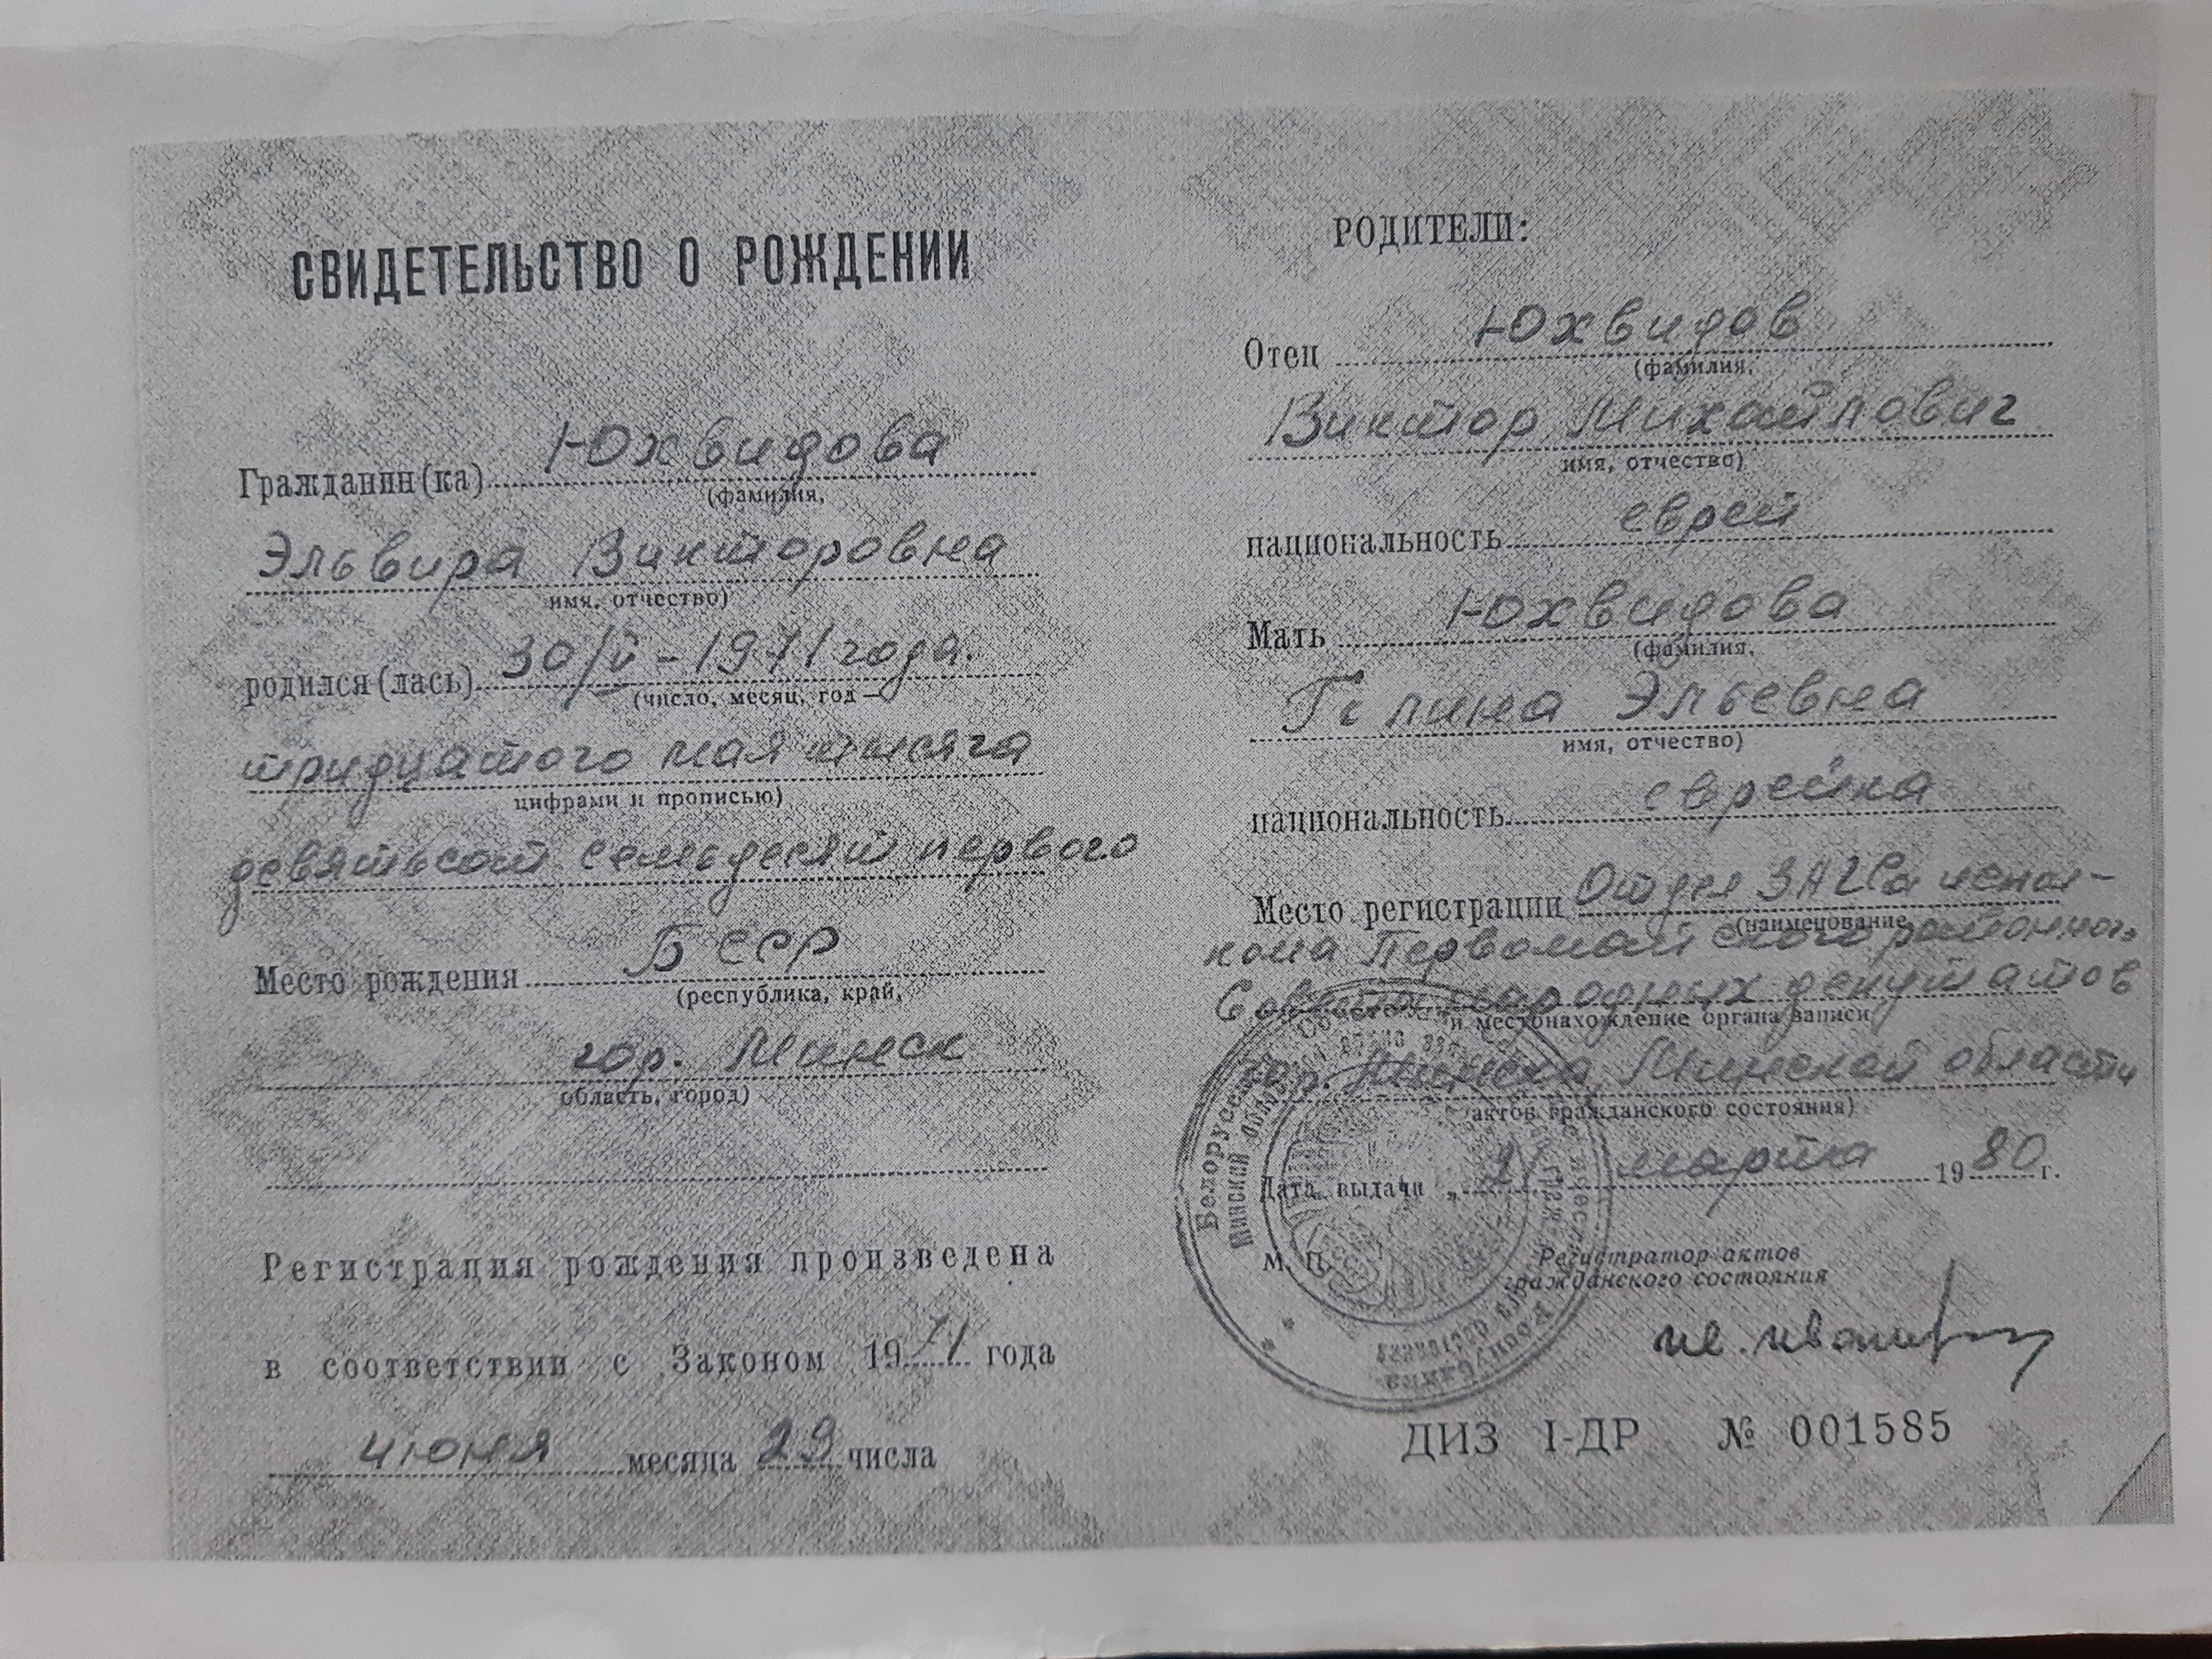 СВИДЕТЕЛЬСТВО О РОЖДЕНИИ
Гражданин(ка) Юхвидова
(фамилия,
Эльвира Викторовна
имя, отчество)
родился(лась) 30/V-1971 года.
(число, месяц, год —
тридцатого мая тысяча
цифрами и прописью)
девятьсот семьдесят первого
Место рождения БССР
(республика, край,
гор. Минск
область, город)
Регистрация рождения произведена
в соответствии с Законом 1971 года
июня месяца 29 числа
РОДИТЕЛИ:
Отец Юхвидов
(фамилия,
Виктор Михайлович
имя, отчество)
национальность еврей
Мать Юхвидова
(фамилия,
Галина Эльевна
имя, отчество)
национальность еврейка
Место регистрации Отдел ЗАГСа испол-
(наименование
кома Первомайского районного
Совета народных депутатов
и местонахождение органа записи
гор. Минска, Минской области
актов гражданского состояния)
Дата выдачи „ марта 1980 г.
М. П.
Регистратор актов
гражданского состояния
ДИЗ I-ДР № 001585